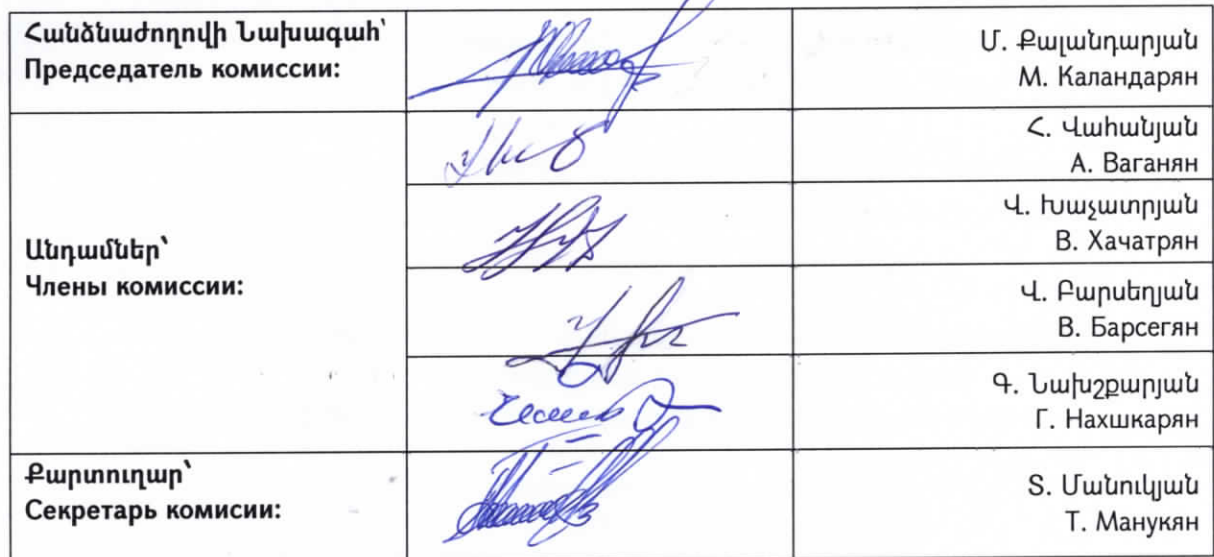 Հանձնաժողովի Նախագահ՝
Председатель комиссии:
Մ. Քալանդարյան
М. Каландарян
Հ. Վահանյան
А. Ваганян
Անդամներ՝
Члены комиссии:
Վ. Խաչատրյան
В. Хачатрян
Վ. Բարսեղյան
В. Барсегян
Գ. Նախշքարյան
Г. Нахшкарян
Քարտուղար՝
Секретарь комисии:
Տ. Մանուկյան
Т. Манукян